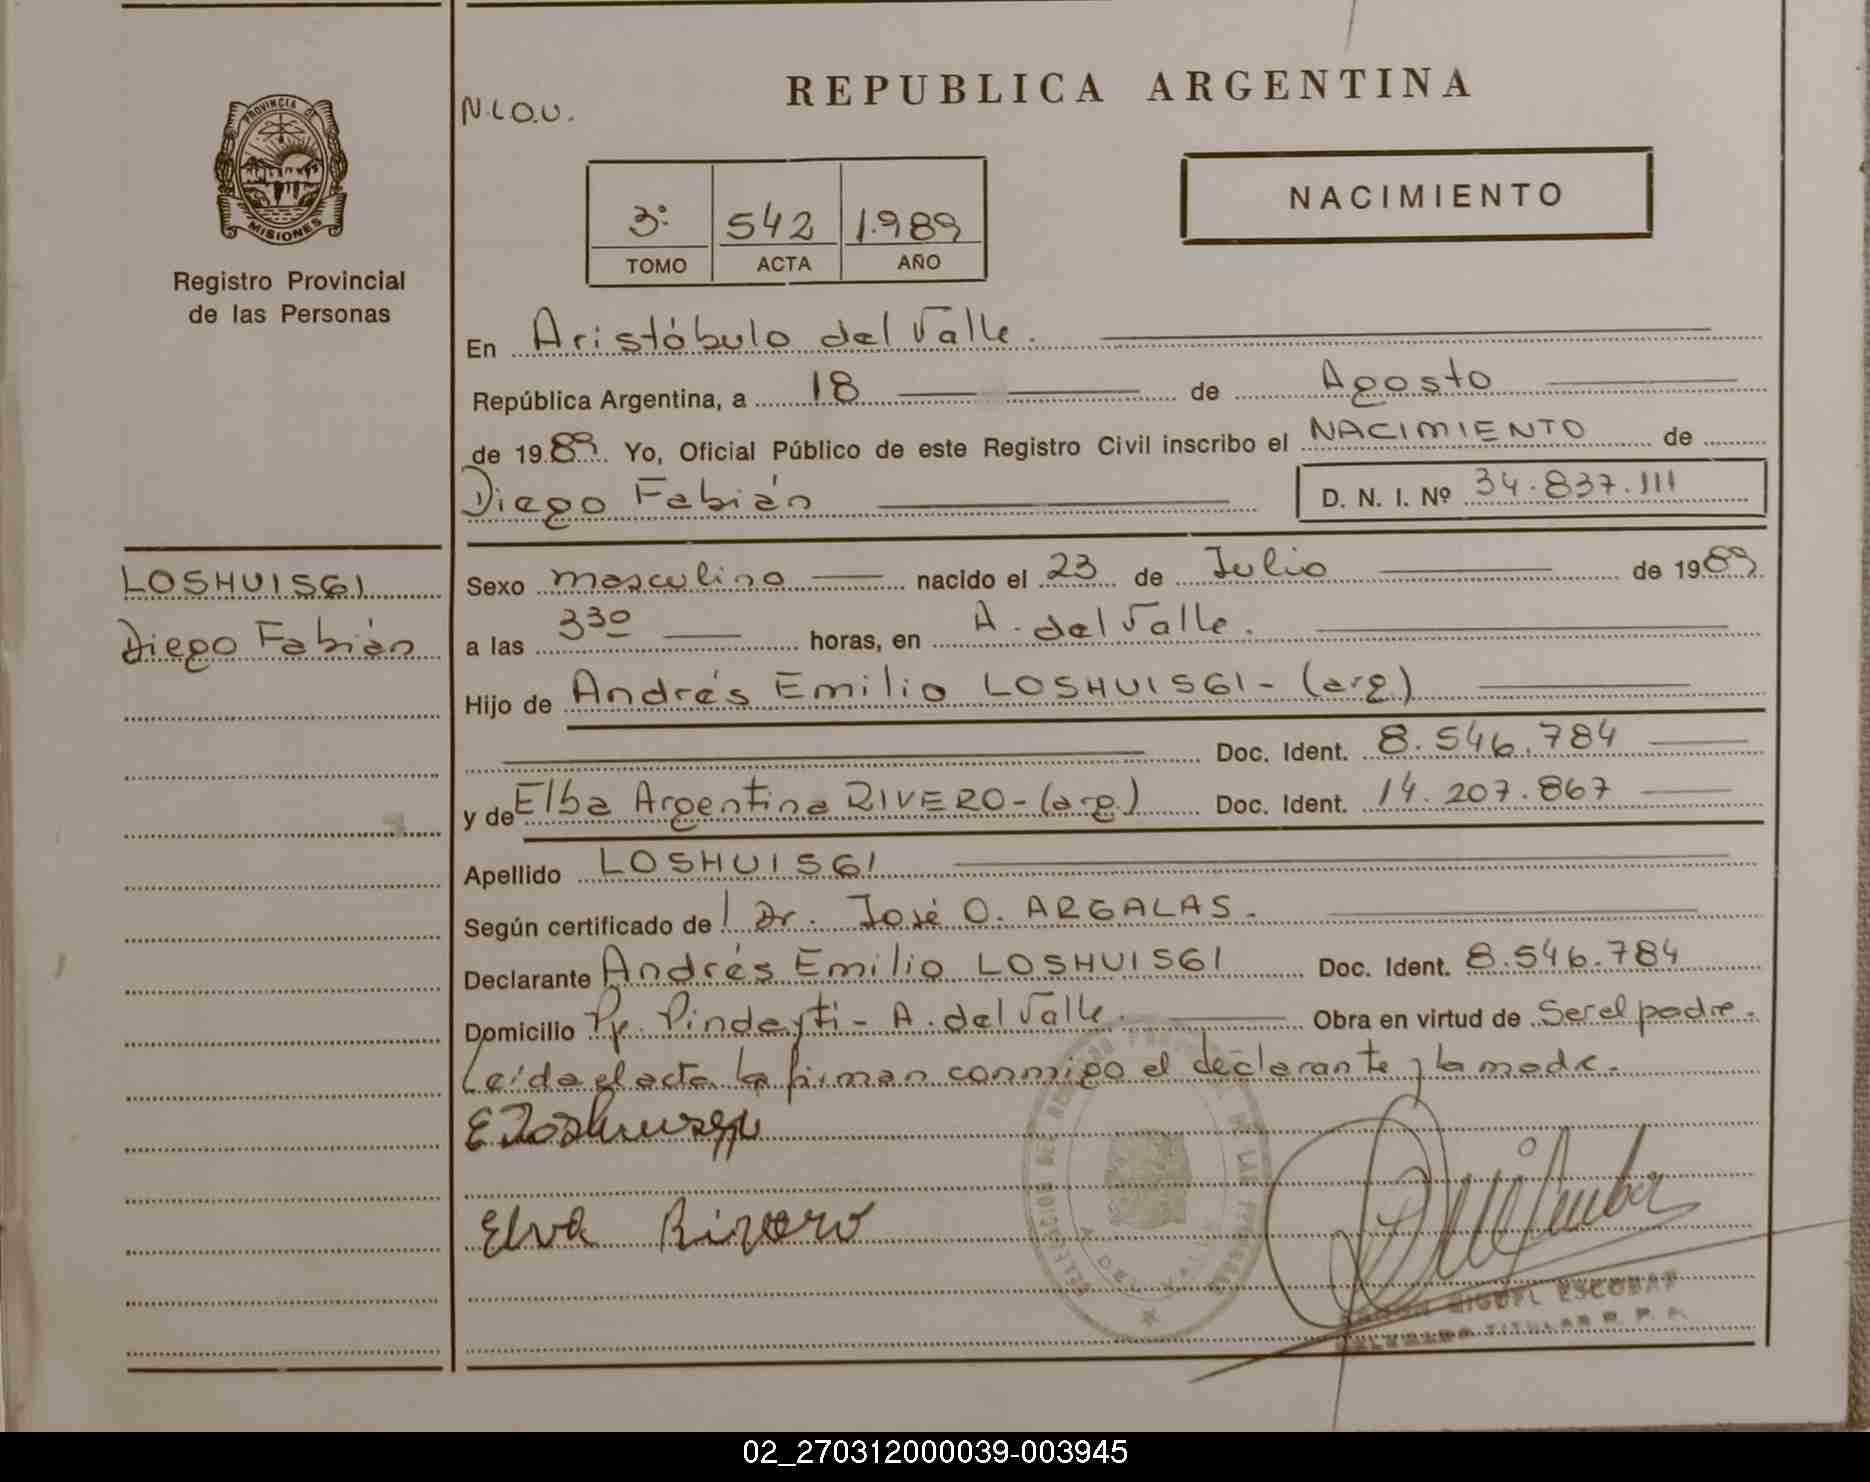 REPUBLICA ARGENTINA
N.L.O.U.
PROVINCIA DE
MISIONES
Registro Provincial
de las Personas
3º 542 1.989
TOMO ACTA AÑO
NACIMIENTO
En Aristóbulo del Valle.
República Argentina, a 18 de Agosto
de 1989 Yo, Oficial Público de este Registro Civil inscribo el NACIMIENTO de
Diego Fabián D. N. I. Nº 34.837.111
LOSHUISGI
Diego Fabián
Sexo masculino nacido el 23 de Julio de 1989
a las 3 30 horas, en A. del Valle.
Hijo de Andrés Emilio LOSHUISGI - (arg.)
Doc. Ident. 8.546.784
y de Elba Argentina RIVERO - (arg.) Doc. Ident. 14.207.867
Apellido LOSHUISGI
Según certificado de l Dr. José O. ARGALAS.
Declarante Andrés Emilio LOSHUISGI Doc. Ident. 8.546.784
Domicilio Pje. Pindayti - A. del Valle. Obra en virtud de Ser el padre.
Leída el acta la firman conmigo el declarante y la madre.
Elva Rivero
A. DEL VALLE
MIGUEL ESCOBAR
TITULAR R. P. P.
02_270312000039-003945